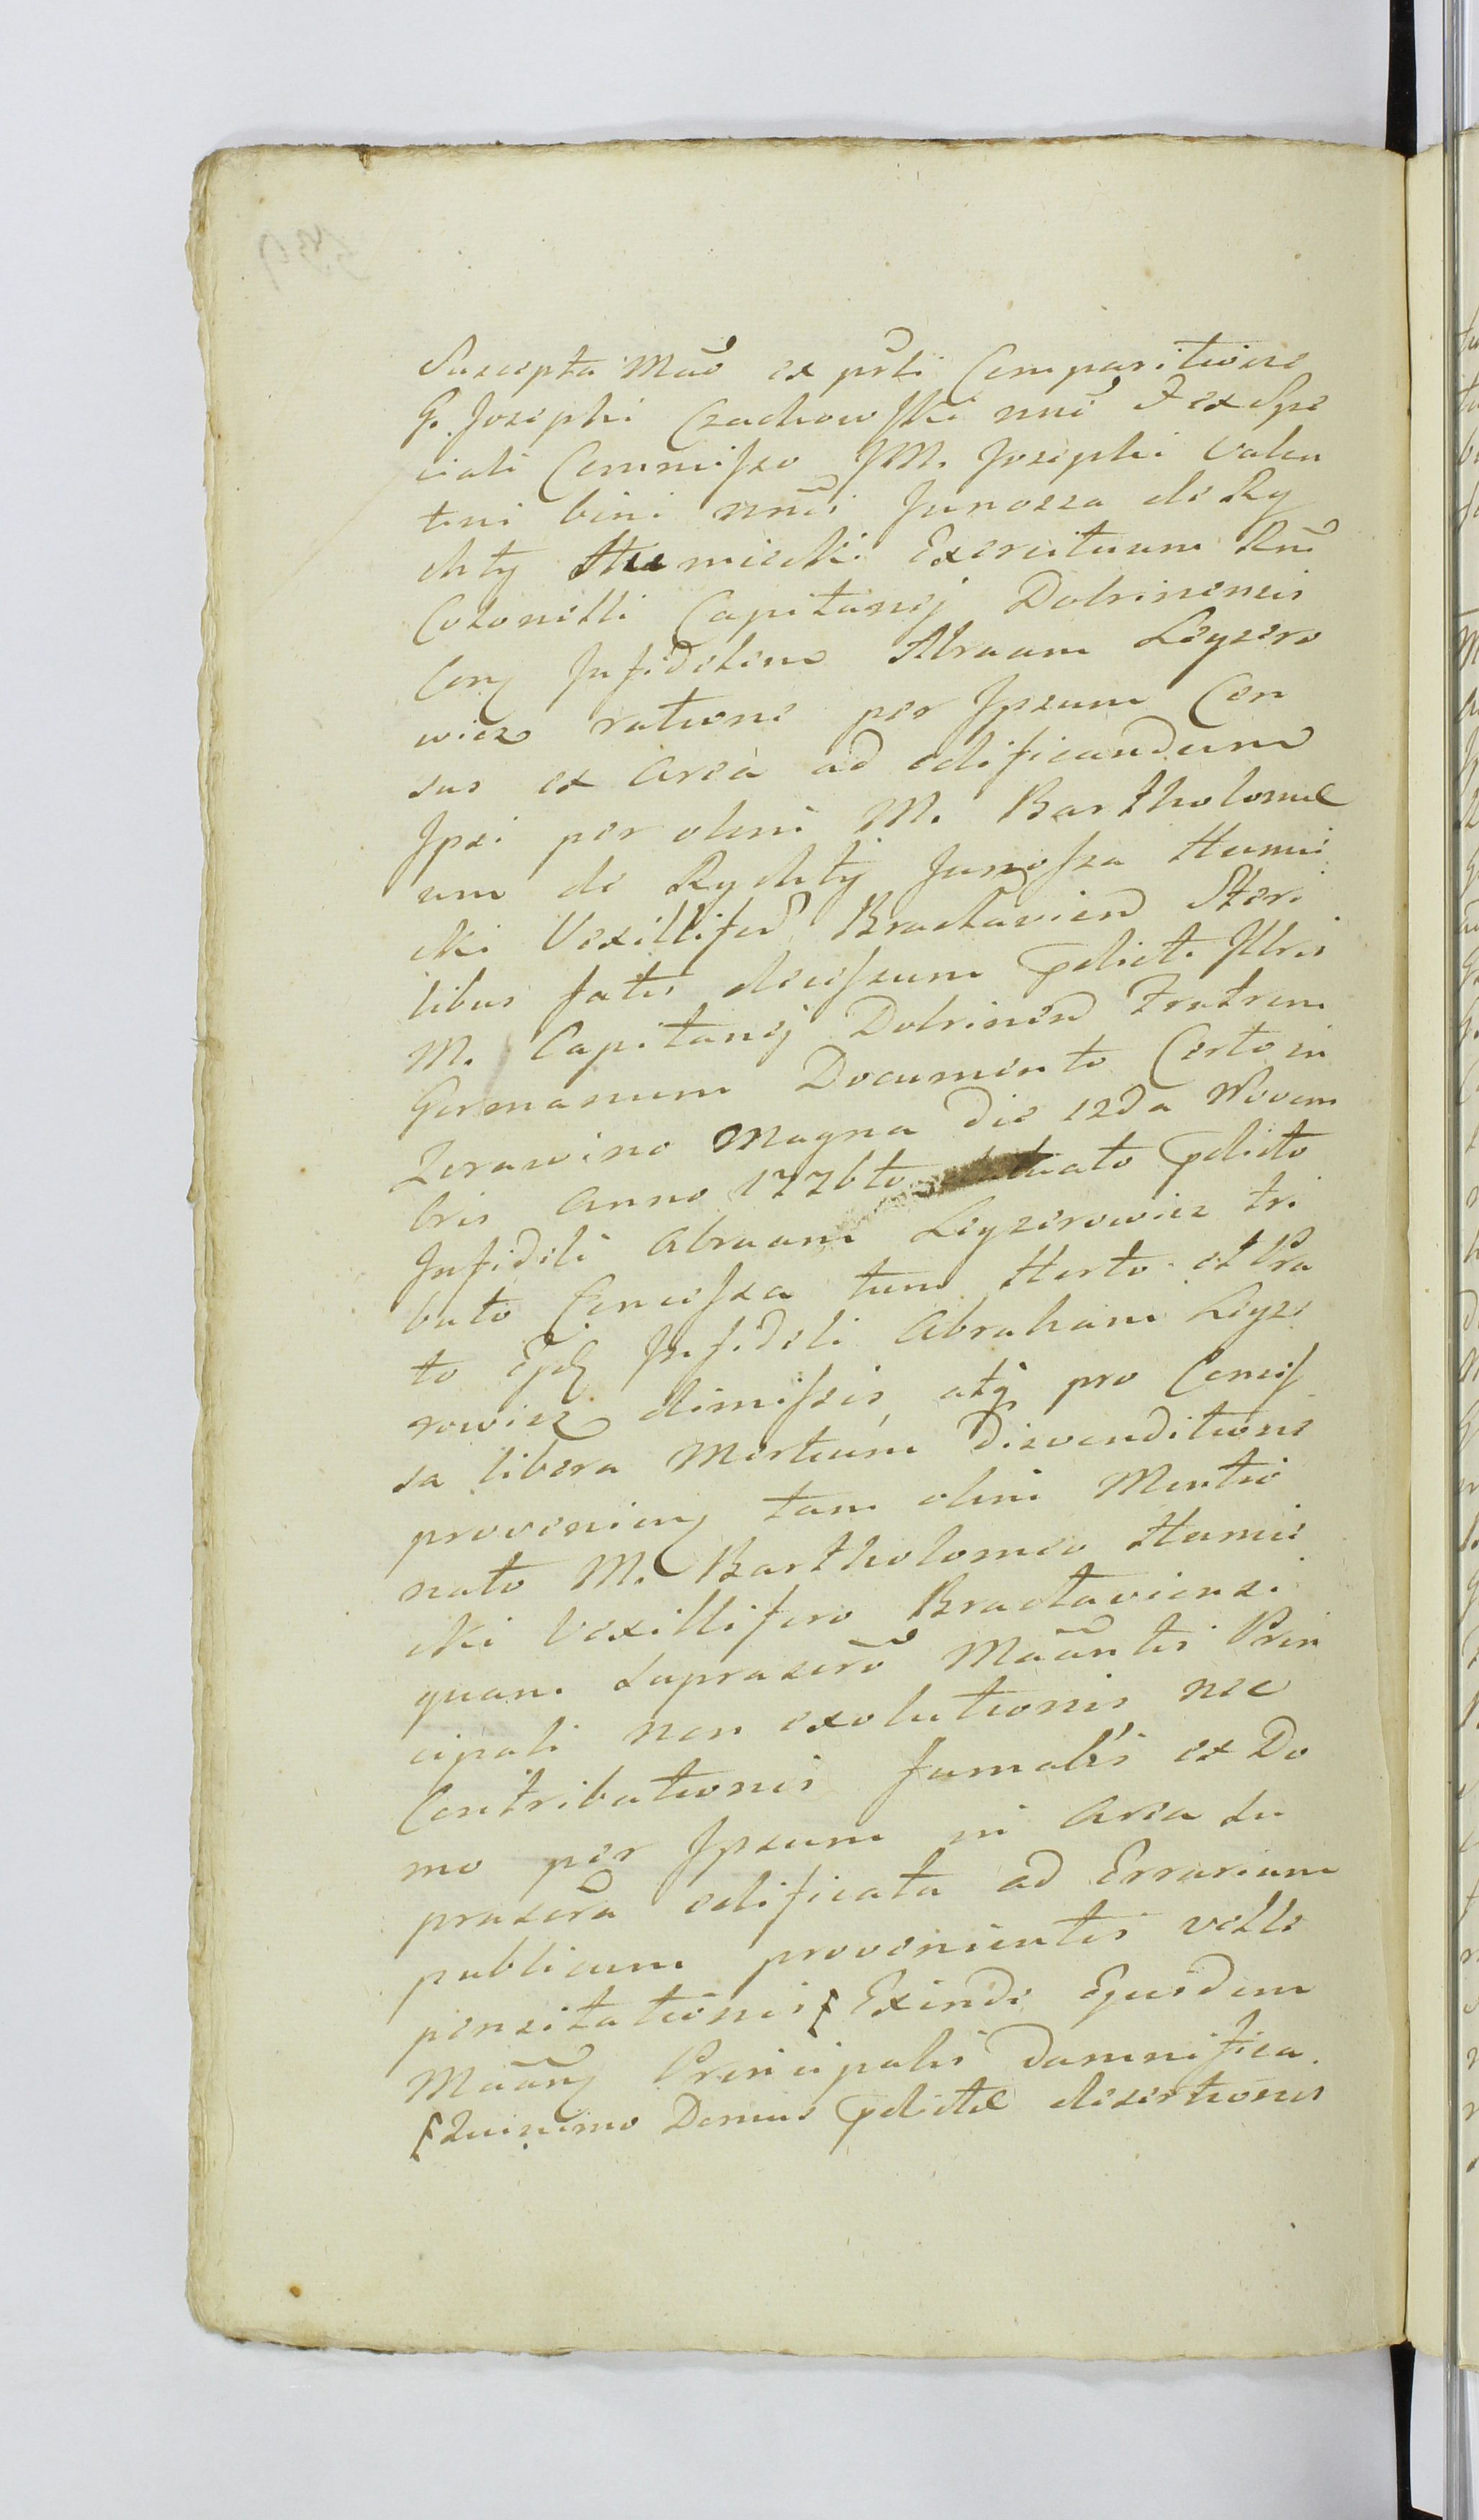 Suscepta Mãe ex pñti Comparitione
G. Josephi Czachowski nñe & ex Spe
ciali Commisso JM. Josephi Valen
tini bini nñis Junosza de Ry
chty Humiecki Exercituum Rñi
Colonelli Capitanej Dobrinensis
Conq Infidelem Abraam Leyzero
wicz ratione per Ipsum Cen
sus ex area ad edificandum
Ipsi per olim M. Bartholome
um de Rychty Junosza Humi
cki Vexillifed Braclavien Steri
libus fatis decessum pdicti Illris
M. Capitanej Dobrinen Fratrem
Germanum Documento Certo in
Zerawino Magna die 12da Novem
bris Anno 1776to pdicto
Infideli Abraam Leyzerowicz tri
buto Concessa tum Horto et Pra
to Infideli Abraham Leyze
rowicz dimissis, atq pro Concess
sa libera Mercium disvenditione
provenien tam olim Mentio
nato M. Bartholomeo Humie
cki Vexillifero Braclaviensi
quam supraseró Mãantis Prin
cipali non exolutionis nec
Contributionis fumalis ex Do
mo per Ipsum in Area su
praserã edificata ad Errarium
publicum provenientis velle
pensitationis Exinde Ejusdem
Mãanq Principalis damnifica
Quinimo Domus pdictæ desertionis